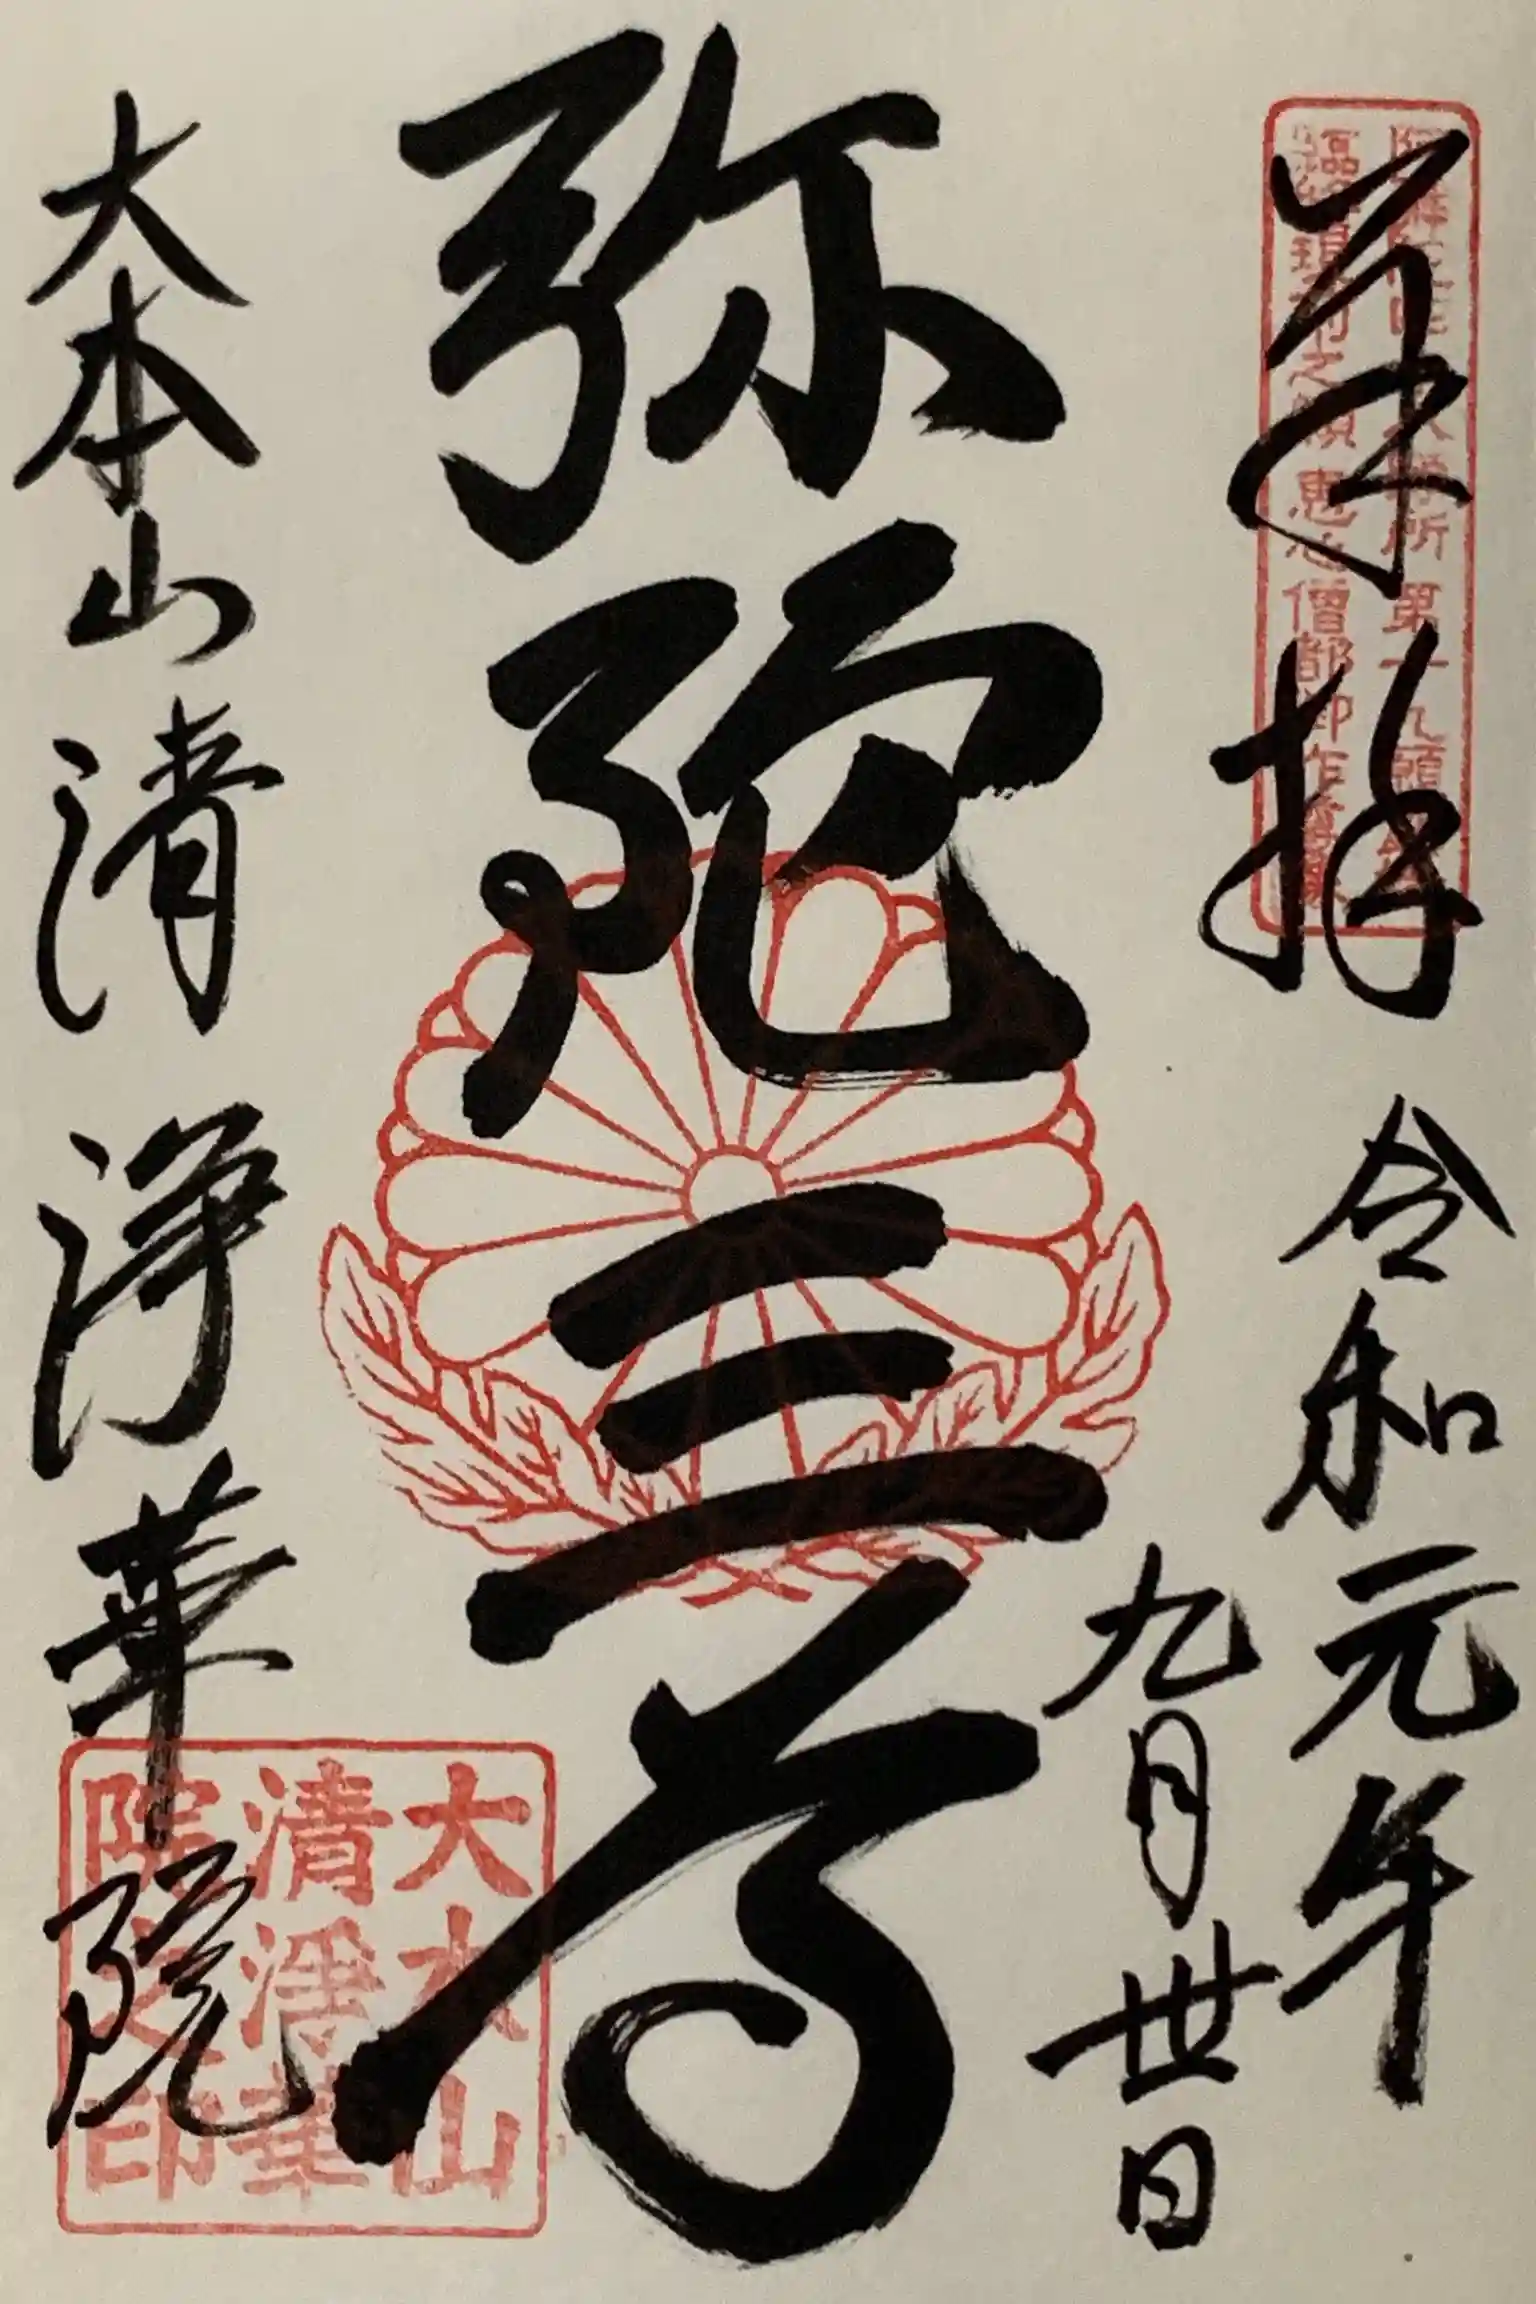 奉拝
令和元年
九月卅日
弥陀三尊
大本山清浄華院
大本山
清浄華
院之印